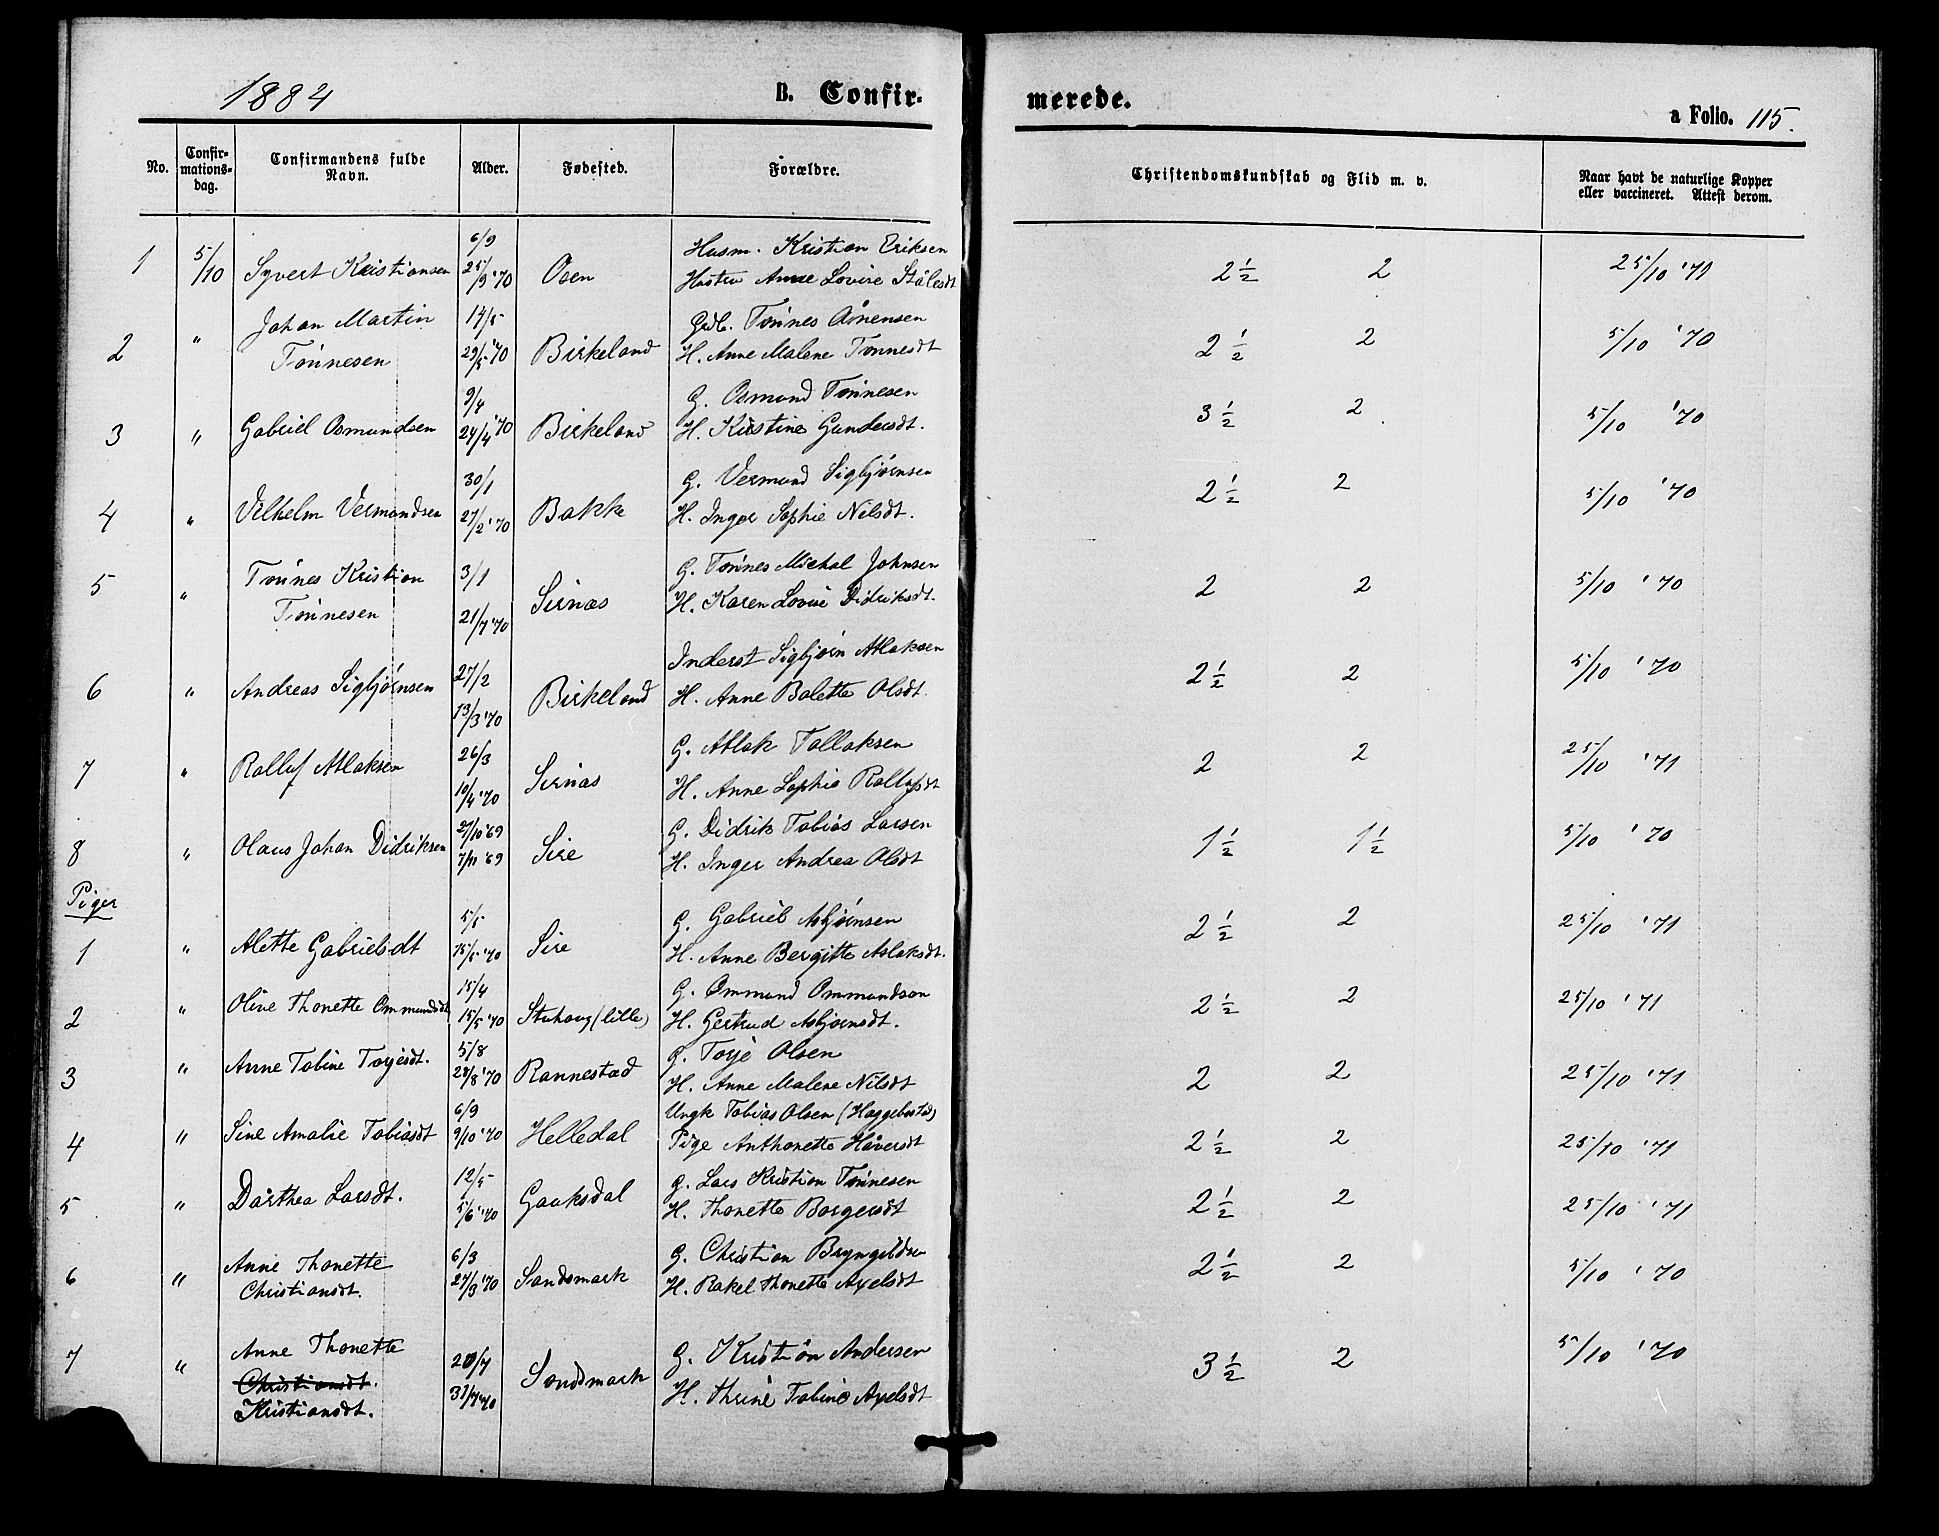 1884
B. Confir-
merede.
a Folio. 115.
No.
Confir-
mations-
dag.
Confirmandens fulde
Navn.
Alder.
Fødested.
Forældre.
Christendomskundskab og Flid m. v.
Naar havt de naturlige Kopper
eller vaccineret. Attest derom.
6/9 Husm. Kristian Eriksen
1 5/10 Syvert Kristiansen 25/9 '70 Osen Hustru Anne Lovise Stålesdt 2 1/2 2 25/10 '71
Johan Martin 14/5 Grdb. Tønnes Asnensen
2 " Tønnesen 29/5 '70 Birkeland H. Anne Malene Tønnesdt 2 1/2 2 5/10 '70
9/4 G. Osmund Tønnesen
3 " Gabriel Osmundsen 24/4 '70 Birkeland H. Kirstine Gundersdt. 3 1/2 2 5/10 '70
30/1 G. Vermund Sigbjørnsen
4 " Vilhelm Vermundsen 27/2 '70 Bakke H. Inger Sophie Nilsdt. 2 1/2 2 5/10 '70
Tønnes Kristian 3/1 G. Tønnes Michal Johnsen
5 " Tønnesen 21/7 '70 Sirnæs H. Karen Lovise Didriksdt. 2 2 5/10 '70
27/2 Inderst Sigbjørn Atlaksen
6 " Andreas Sigbjørnsen 13/3 '70 Birkeland H. Anne Bolette Olsdt. 2 1/2 2 5/10 '70
26/3 G. Atlak Tollaksen
7 " Rolluf Atlaksen 10/4 '70 Sirnæs H. Anne Sophie Rollufsdt 2 2 25/10 '71
27/10 '69 G. Didrik Tobias Larsen
8 " Olaus Johan Didriksen 7/11 '69 Sire H. Inger Andrea Olsdt 1 1/2 1 1/2 5/10 '70
Piger
5/5 G. Gabriel Asbjørnsen
1 " Alette Gabrielsdt 15/5 '70 Sire H. Anne Bergitte Aslaksdt. 2 1/2 2 25/10 '71
15/4 G. Ommund Ommundsen
2 " Oline Thonette Ommundsdt 15/5 '70 Stuhaug (lille) H. Gertrud Asbjørnsdt. 2 1/2 2 25/10 '71
5/8 G. Torje Olsen
3 " Anne Tobine Torjesdt. 28/8 '70 Rannestad H. Anne Malene Nilsdt 2 2 25/10 '71
6/9 Ungk Tobias Olsen (Haggebostad)
4 " Sine Amalie Tobiasdt 9/10 '70 Helledal Pige Anthonette Håversdt 2 1/2 2 25/10 '71
12/5 G. Lars Kristian Tønnesen
5 " Dårthea Larsdt. 5/6 '70 Gauksdal H. Thonette Borgersdt 2 1/2 2 25/10 '71
Anne Thonette 6/3 G. Christian Bryngildsen
6 " Christiansdt. 27/3 '70 Sandsmark H. Rakel Thonette Axelsdt 2 1/2 2 5/10 '70
Anne Thonette 20/7 G. Kristian Andersen
7 " Christiansdt. 31/7 '70 Sandsmark H. Thrine Tobine Axelsdt 3 1/2 2 5/10 '70
Kristiansdt.